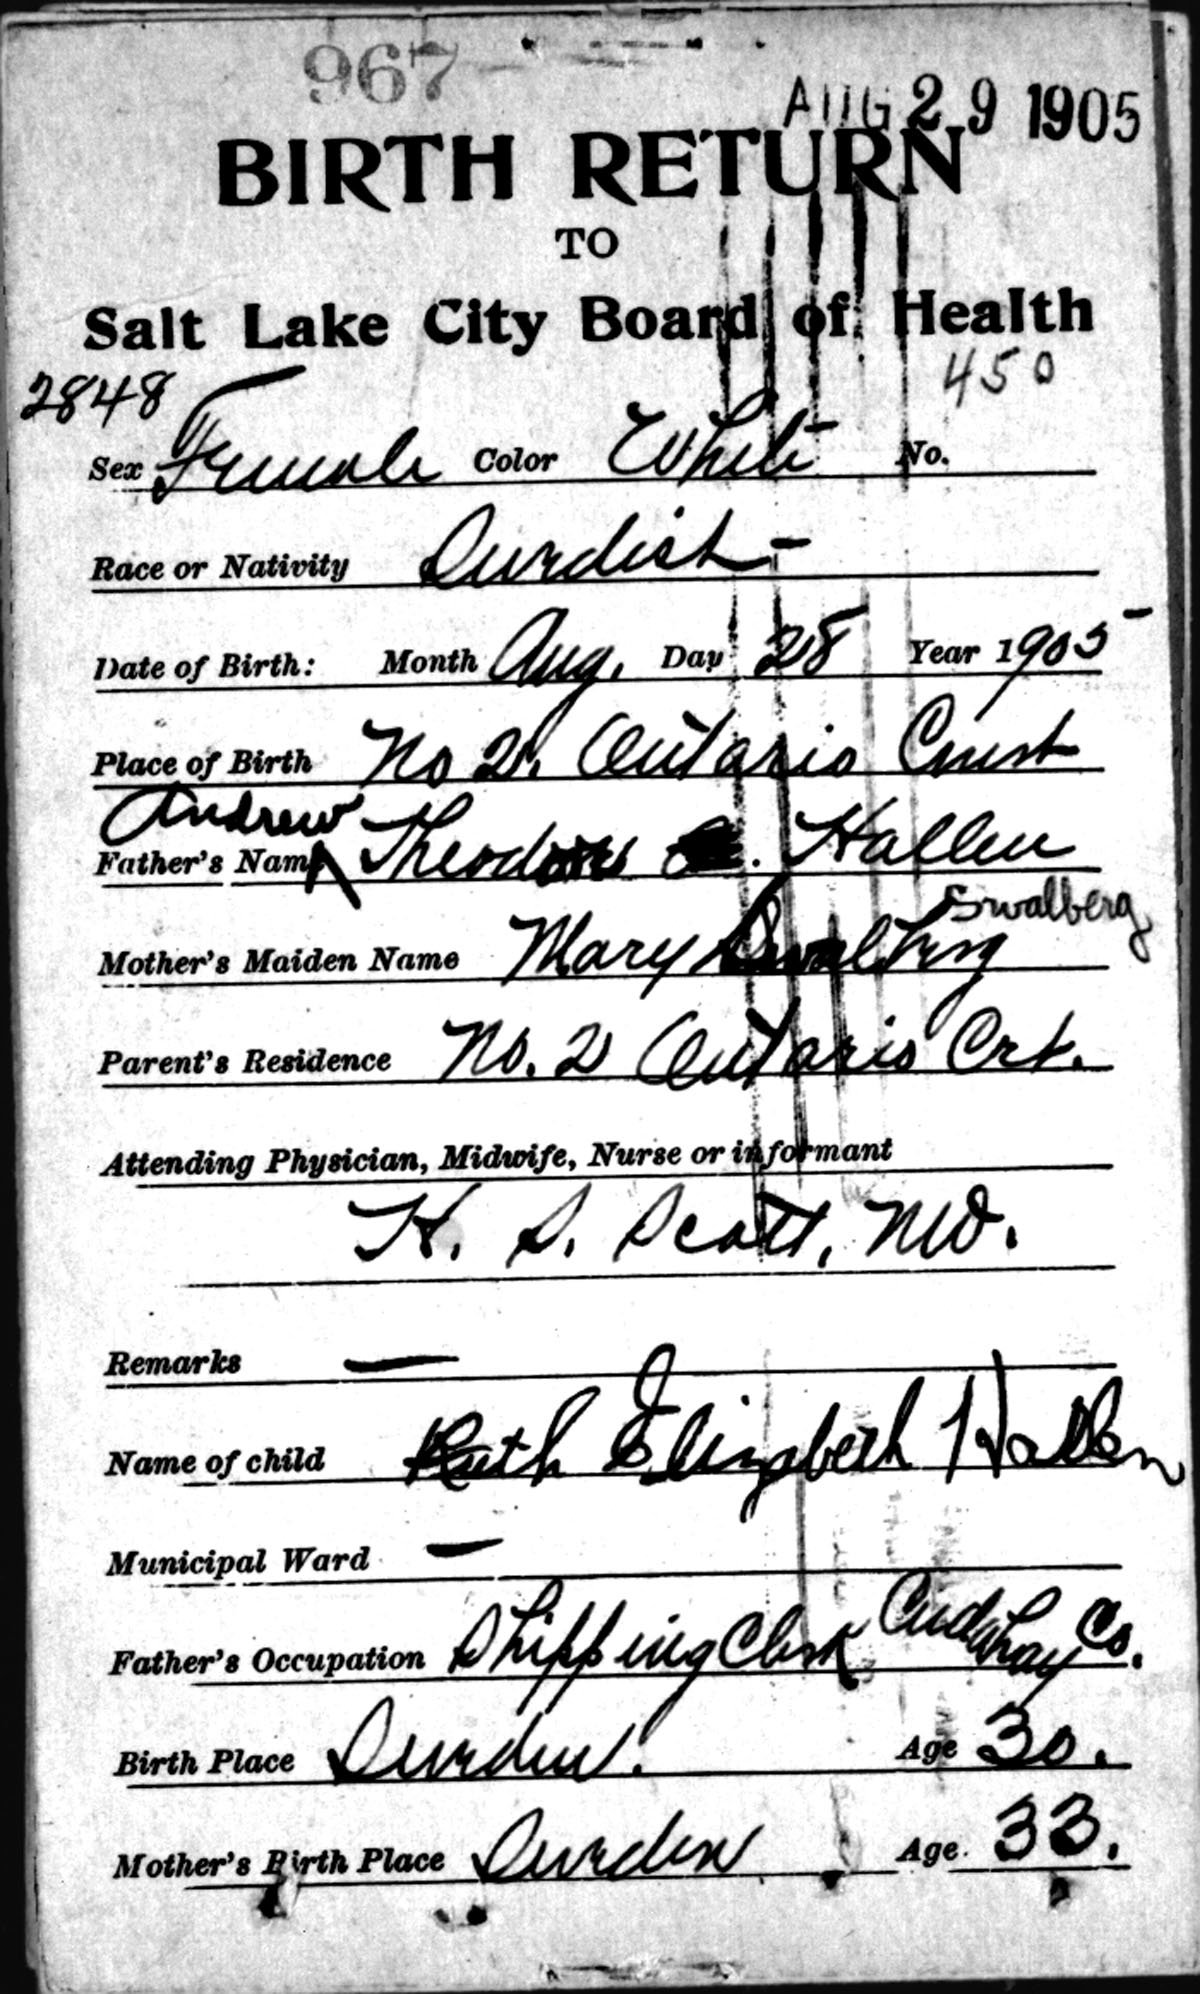 967
AUG 29 1905
BIRTH RETURN
TO
Salt Lake City Board of Health
2848
450
Sex Female Color White No.
Race or Nativity Swedish -
Date of Birth: Month Aug. Day 28 Year 1905
Place of Birth No 2. Ontario Court
Andrew
Father's Name Theodore . Hallen
Swalberg
Mother's Maiden Name Mary Swalberg
Parent's Residence No. 2 Ontario Crt.
Attending Physician, Midwife, Nurse or informant
H. S. Scott, MD.
Remarks —
Name of child Ruth Elizabeth Hallen
Municipal Ward —
Father's Occupation Shipping Clerk Cudahay Co.
Birth Place Sweden. Age 30.
Mother's Birth Place Sweden Age. 33.